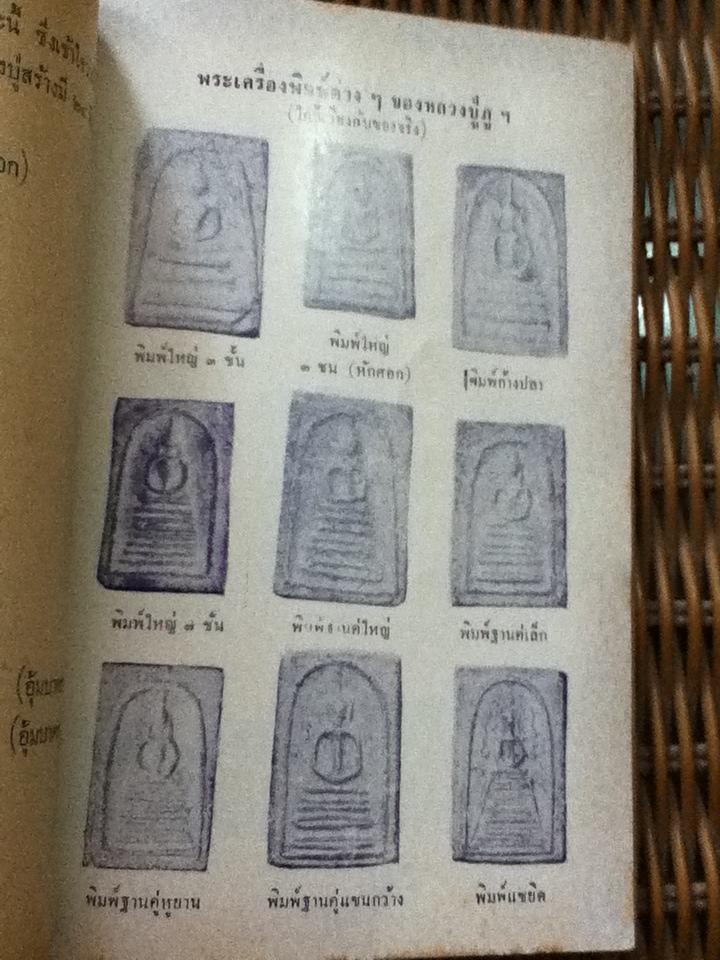 ะนี้ ซึ่งเข้าใจ
งปู่สร้างมี ๒๔
อก)
(อุ้มบาตร
(อุ้มบาตร
พระเครื่องพิมพ์ต่าง ๆ ของหลวงปู่ภู ฯ
(ใกล้เคียงกับของจริง)
พิมพ์ใหญ่ ๓ ชั้น
พิมพ์ใหญ่
๓ ชน (หักศอก)
พิมพ์ก้างปลา
พิมพ์ใหญ่ ๗ ชั้น
พิมพ์ฐานคู่ใหญ่
พิมพ์ฐานคู่เล็ก
พิมพ์ฐานคู่หูยาน
พิมพ์ฐานคู่แขนกว้าง
พิมพ์แซยิด